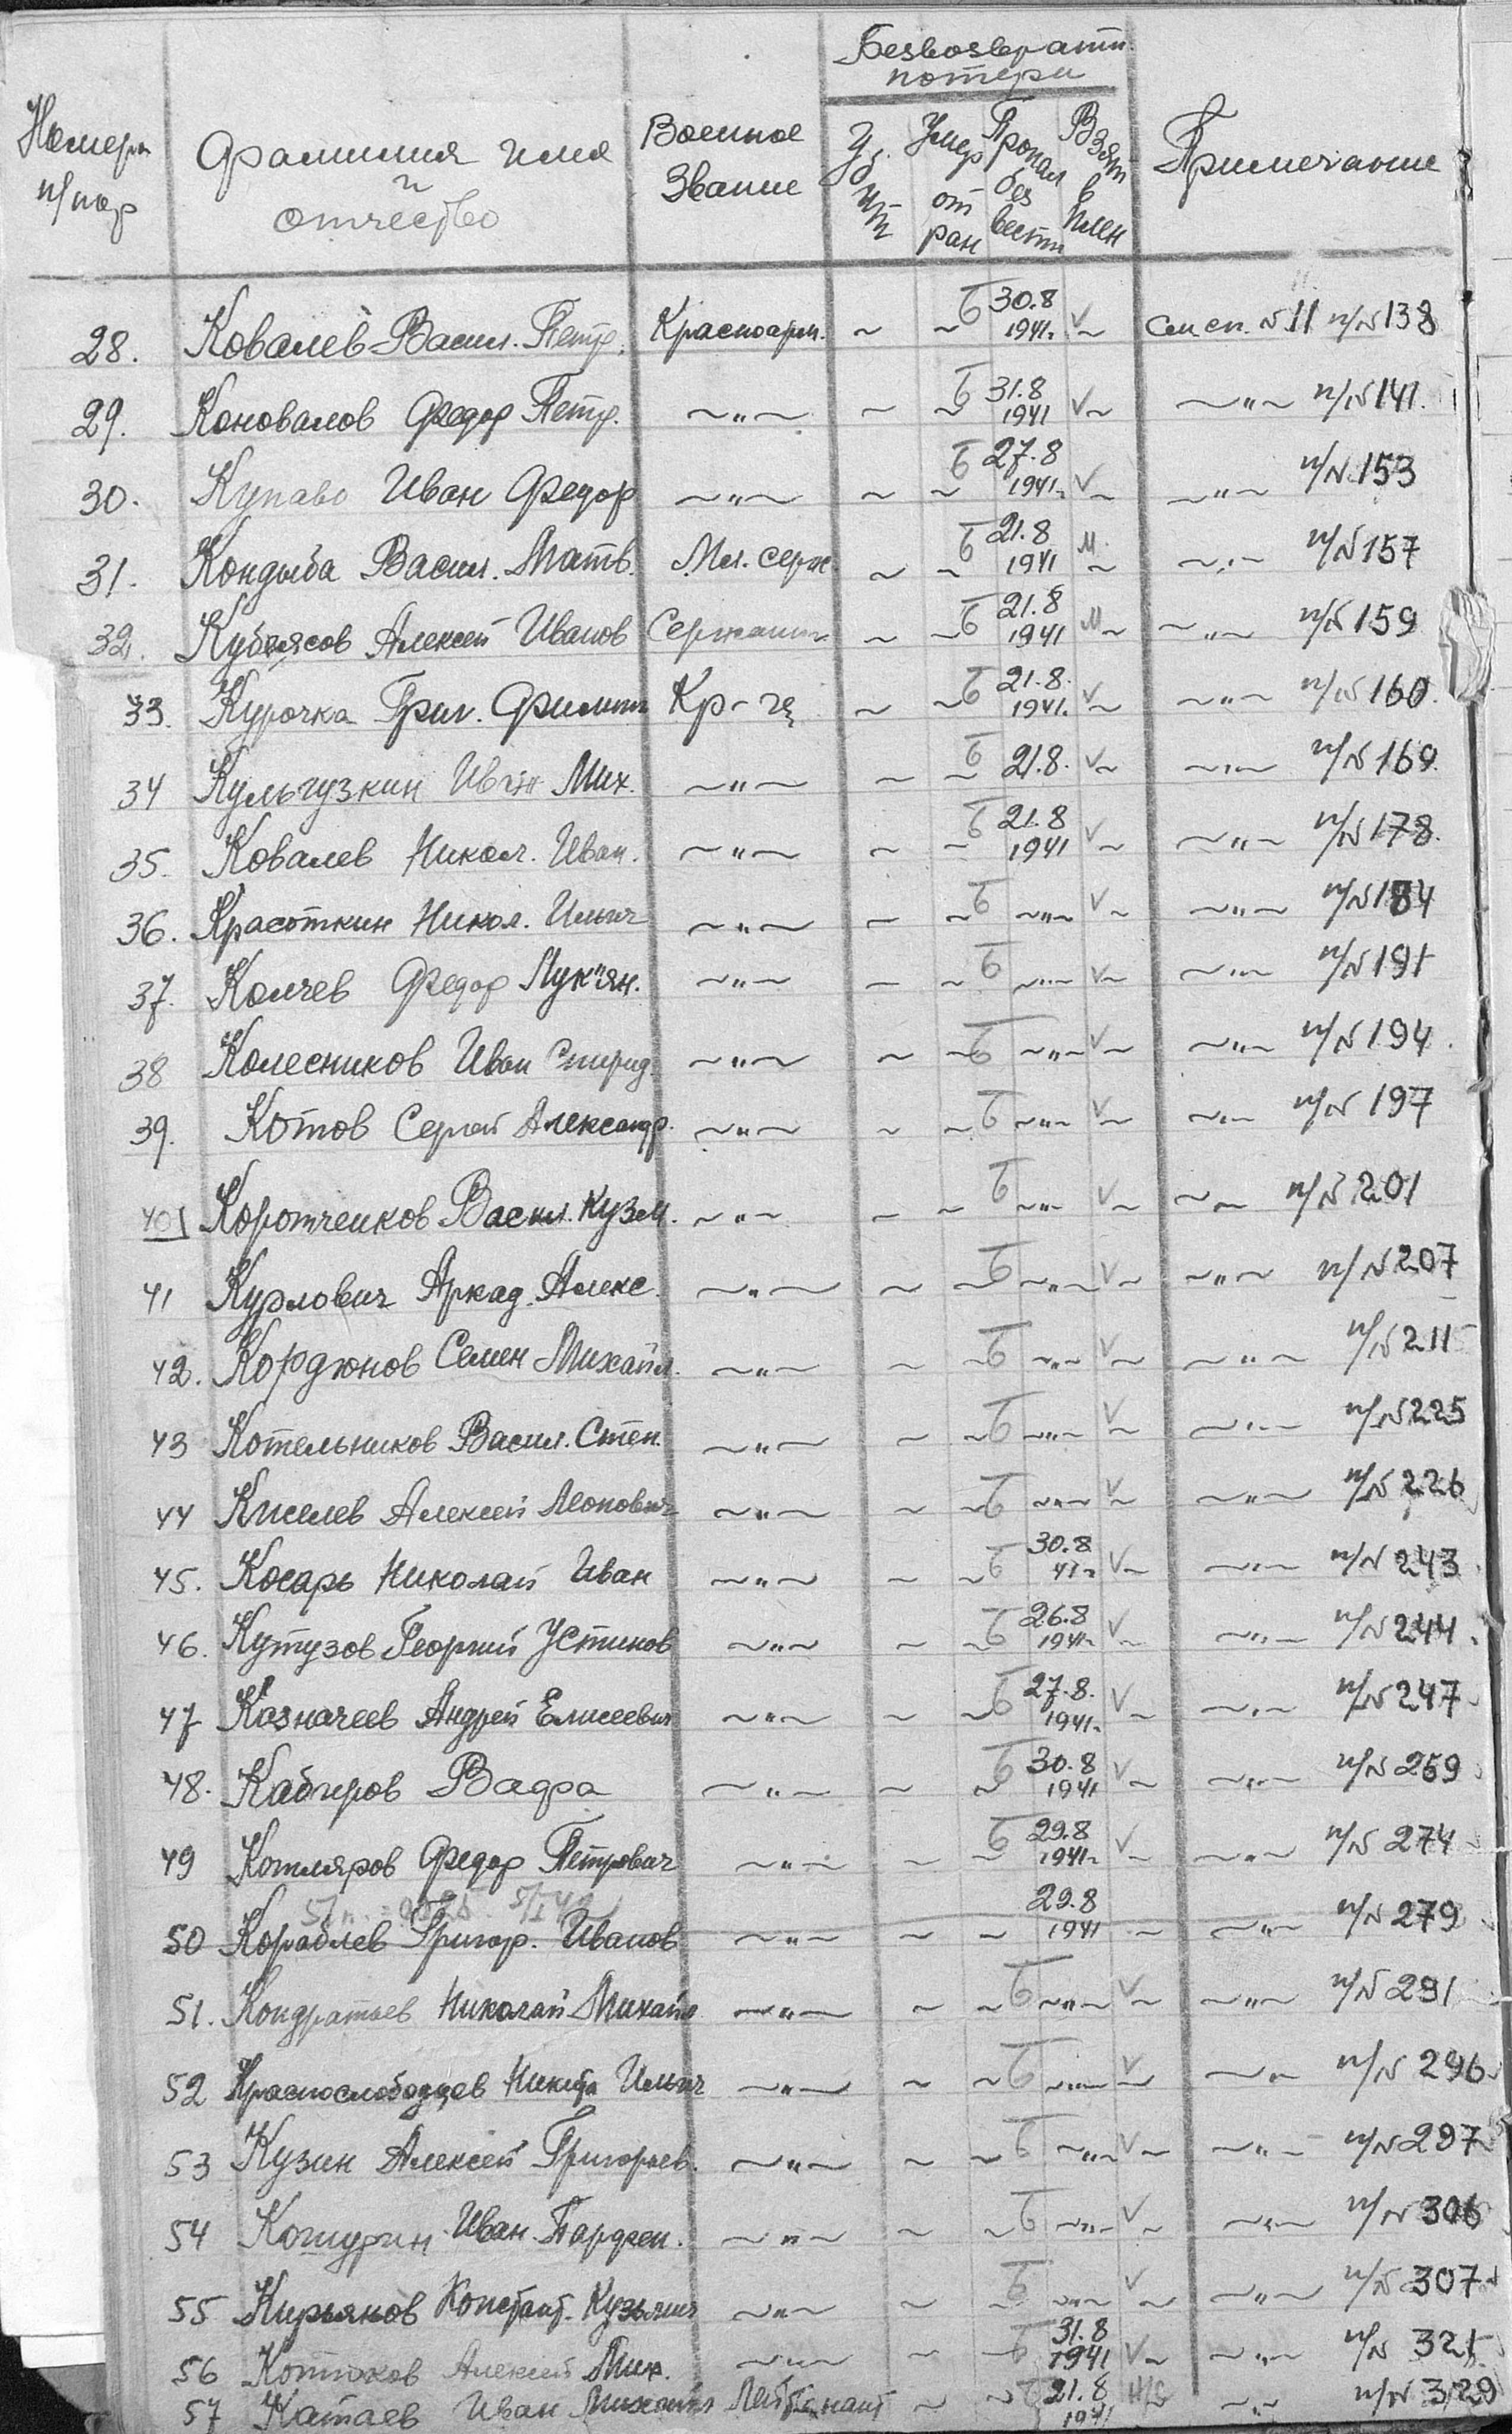 Безвозвратн.
потери
Номера
п/пор
Фамилия имя
и
отчество
Военное
Звание
Убит
Умер от ран
Пропал без вести
Взят в плен
Примечание
28. Ковалев Васил. Петр. Красноарм. ~ ~ б 30.8 1941г. V ~ См сп. №11 п/№138
29. Коновалов Федор Петр. ~"~ ~ ~ б 31.8 1941 V ~ ~"~ п/№141.
30. Купаво Иван Федор ~"~ ~ ~ б 27.8 1941г. V ~ ~"~ п/№153
31. Кондыба Васил. Матв. Мл. серж. ~ ~ б 21.8 1941 М ~ ~"~ п/№157
32. Кубясов Алексей Иванов Сержант ~ ~ б 21.8 1941 М ~ ~"~ п/№159
33. Курочка Григ. Филип Кр-ец ~ ~ б 21.8. 1941. V ~ ~"~ п/№160.
34 Кульгузкин Иван Мих. ~"~ ~ ~ б 21.8. V ~ ~"~ п/№169.
35. Ковалев Никол. Иван. ~"~ ~ ~ б 21.8 1941 V ~ ~"~ п/№178.
36. Красоткин Никол. Ильич ~"~ ~ ~ б ~"~ V ~ ~"~ п/№184
37. Колчев Федор Лук"ян. ~"~ ~ ~ б ~"~ V ~ ~"~ п/№191
38 Колесников Иван Спирид. ~"~ ~ ~ б ~"~ V ~ ~"~ п/№194.
39. Котов Сергей Александр. ~"~ ~ ~ б ~"~ V ~ ~"~ п/№197
40 Коротченков Васил. Кузм. ~"~ ~ ~ б ~"~ V ~ ~ ~ п/№201
41 Курлович Аркад. Алекс. ~"~ ~ ~ б ~"~ V ~ ~"~ п/№207
42. Кордюнов Семен Михайл. ~"~ ~ ~ б ~"~ V ~ ~"~ п/№211
43 Котельников Васил. Степ. ~"~ ~ ~ б ~"~ V ~ ~"~ п/№225
44 Киселев Алексей Леонович ~"~ ~ ~ б ~"~ V ~ ~"~ п/№226
45. Косарь Николай Иван ~"~ ~ ~ б 30.8 41г V ~ ~"~ п/№243
46. Кутузов Георгий Устинов ~"~ ~ ~ б 26.8 1941г. V ~ ~"~ п/№244.
47 Казначеев Андрей Елисеевич ~"~ ~ ~ б 27.8. 1941г. V ~ ~"~ п/№247
48. Кабиров Вафа ~"~ ~ ~ б 30.8 1941 V ~ ~"~ п/№269
49 Котляров Федор Петрович ~"~ ~ ~ б 29.8 1941г. V ~ ~"~ п/№274
50 Кораблев Григор. Иванов ~"~ ~ ~ 29.8 1941 ~ ~"~ п/№279
51. Кондратьев Николай Михайл ~"~ ~ ~ б ~"~ V ~ ~"~ п/№291
52 Краснослободцев Никита Ильич ~"~ ~ ~ б ~"~ V ~ ~"~ п/№296
53 Кузин Алексей Григорьев. ~"~ ~ ~ б ~"~ V ~ ~"~ п/№297
54 Кошурин Иван Парфен. ~"~ ~ ~ б ~"~ V ~ ~"~ п/№306
55 Кирьянов Констант. Кузьмич ~"~ ~ ~ б ~"~ V ~ ~"~ п/№307
56 Алексей Мих. ~"~ ~ ~ б 31.8 1941 V ~ ~"~ п/№ 321
57 Катаев Иван Михайл Лейтенант ~ ~ б 21.8 1941 н/с ~"~ п/№329